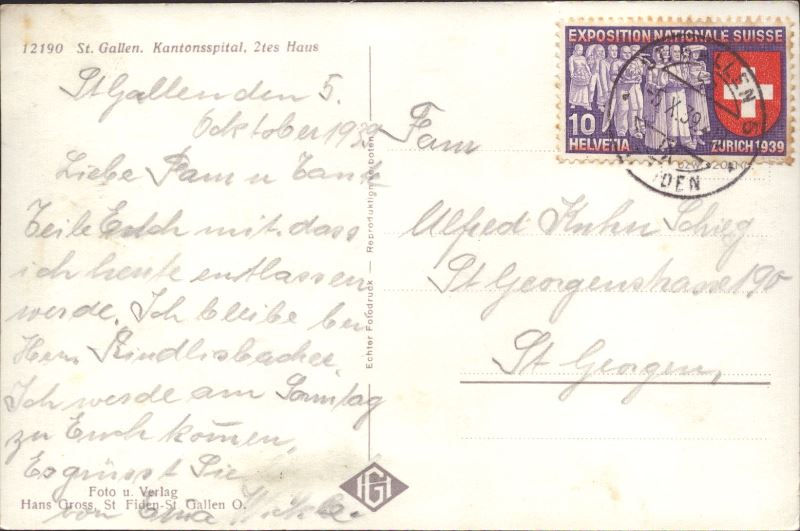 12190 St. Gallen. Kantonsspital, 2tes Haus
St Gallen den 5.
Ocktober 1939
Liebe Fam u Tante
Teile Euch mit, dass
ich heute entlassen
werde. Ich bleibe bei
Herr Rindlisbacher.
Ich werde am Sonntag
zu Euch kommen,
Es grüsst Sie
von
Foto u. Verlag
Hans Gross, St Fiden-St Gallen O.
Echter Fotodruck — Reproduktion verboten
HG
EXPOSITION NATIONALE SUISSE
10
HELVETIA
ZÜRICH 1939
ST. GALLEN
X.39
FIDEN
Fam
Alfred Kuhn Schieg
St Georgenstrasse 190
St Georgen,